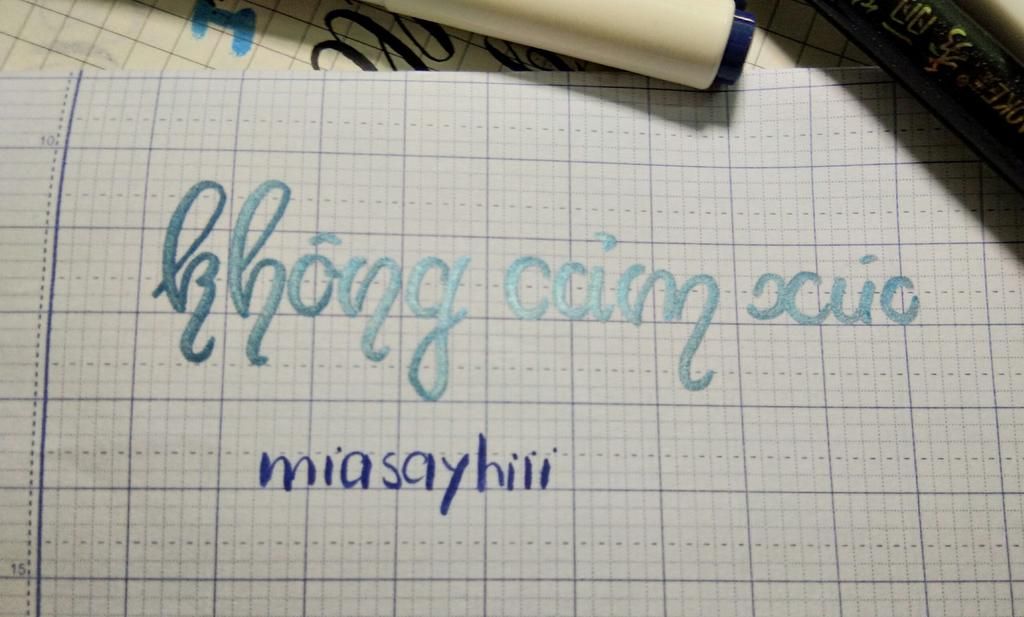 10
không cảm xúc
miasayhiii
15